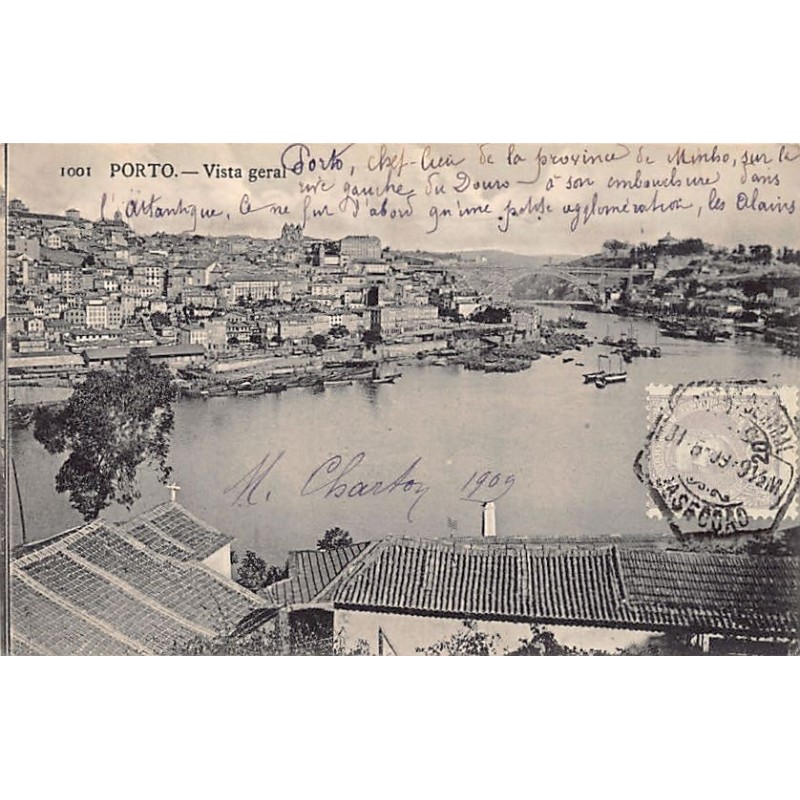 1001 PORTO. — Vista geral Porto, chef-lieu de la province de Minho, sur la
rive gauche du Douro - à son embouchure dans
l'Atlantique, Ce ne fut d'abord qu'une petite agglomération, les Alains
M. Charton 1909
CENTRAL
31-5-09-9½M.
1ASECCÃO